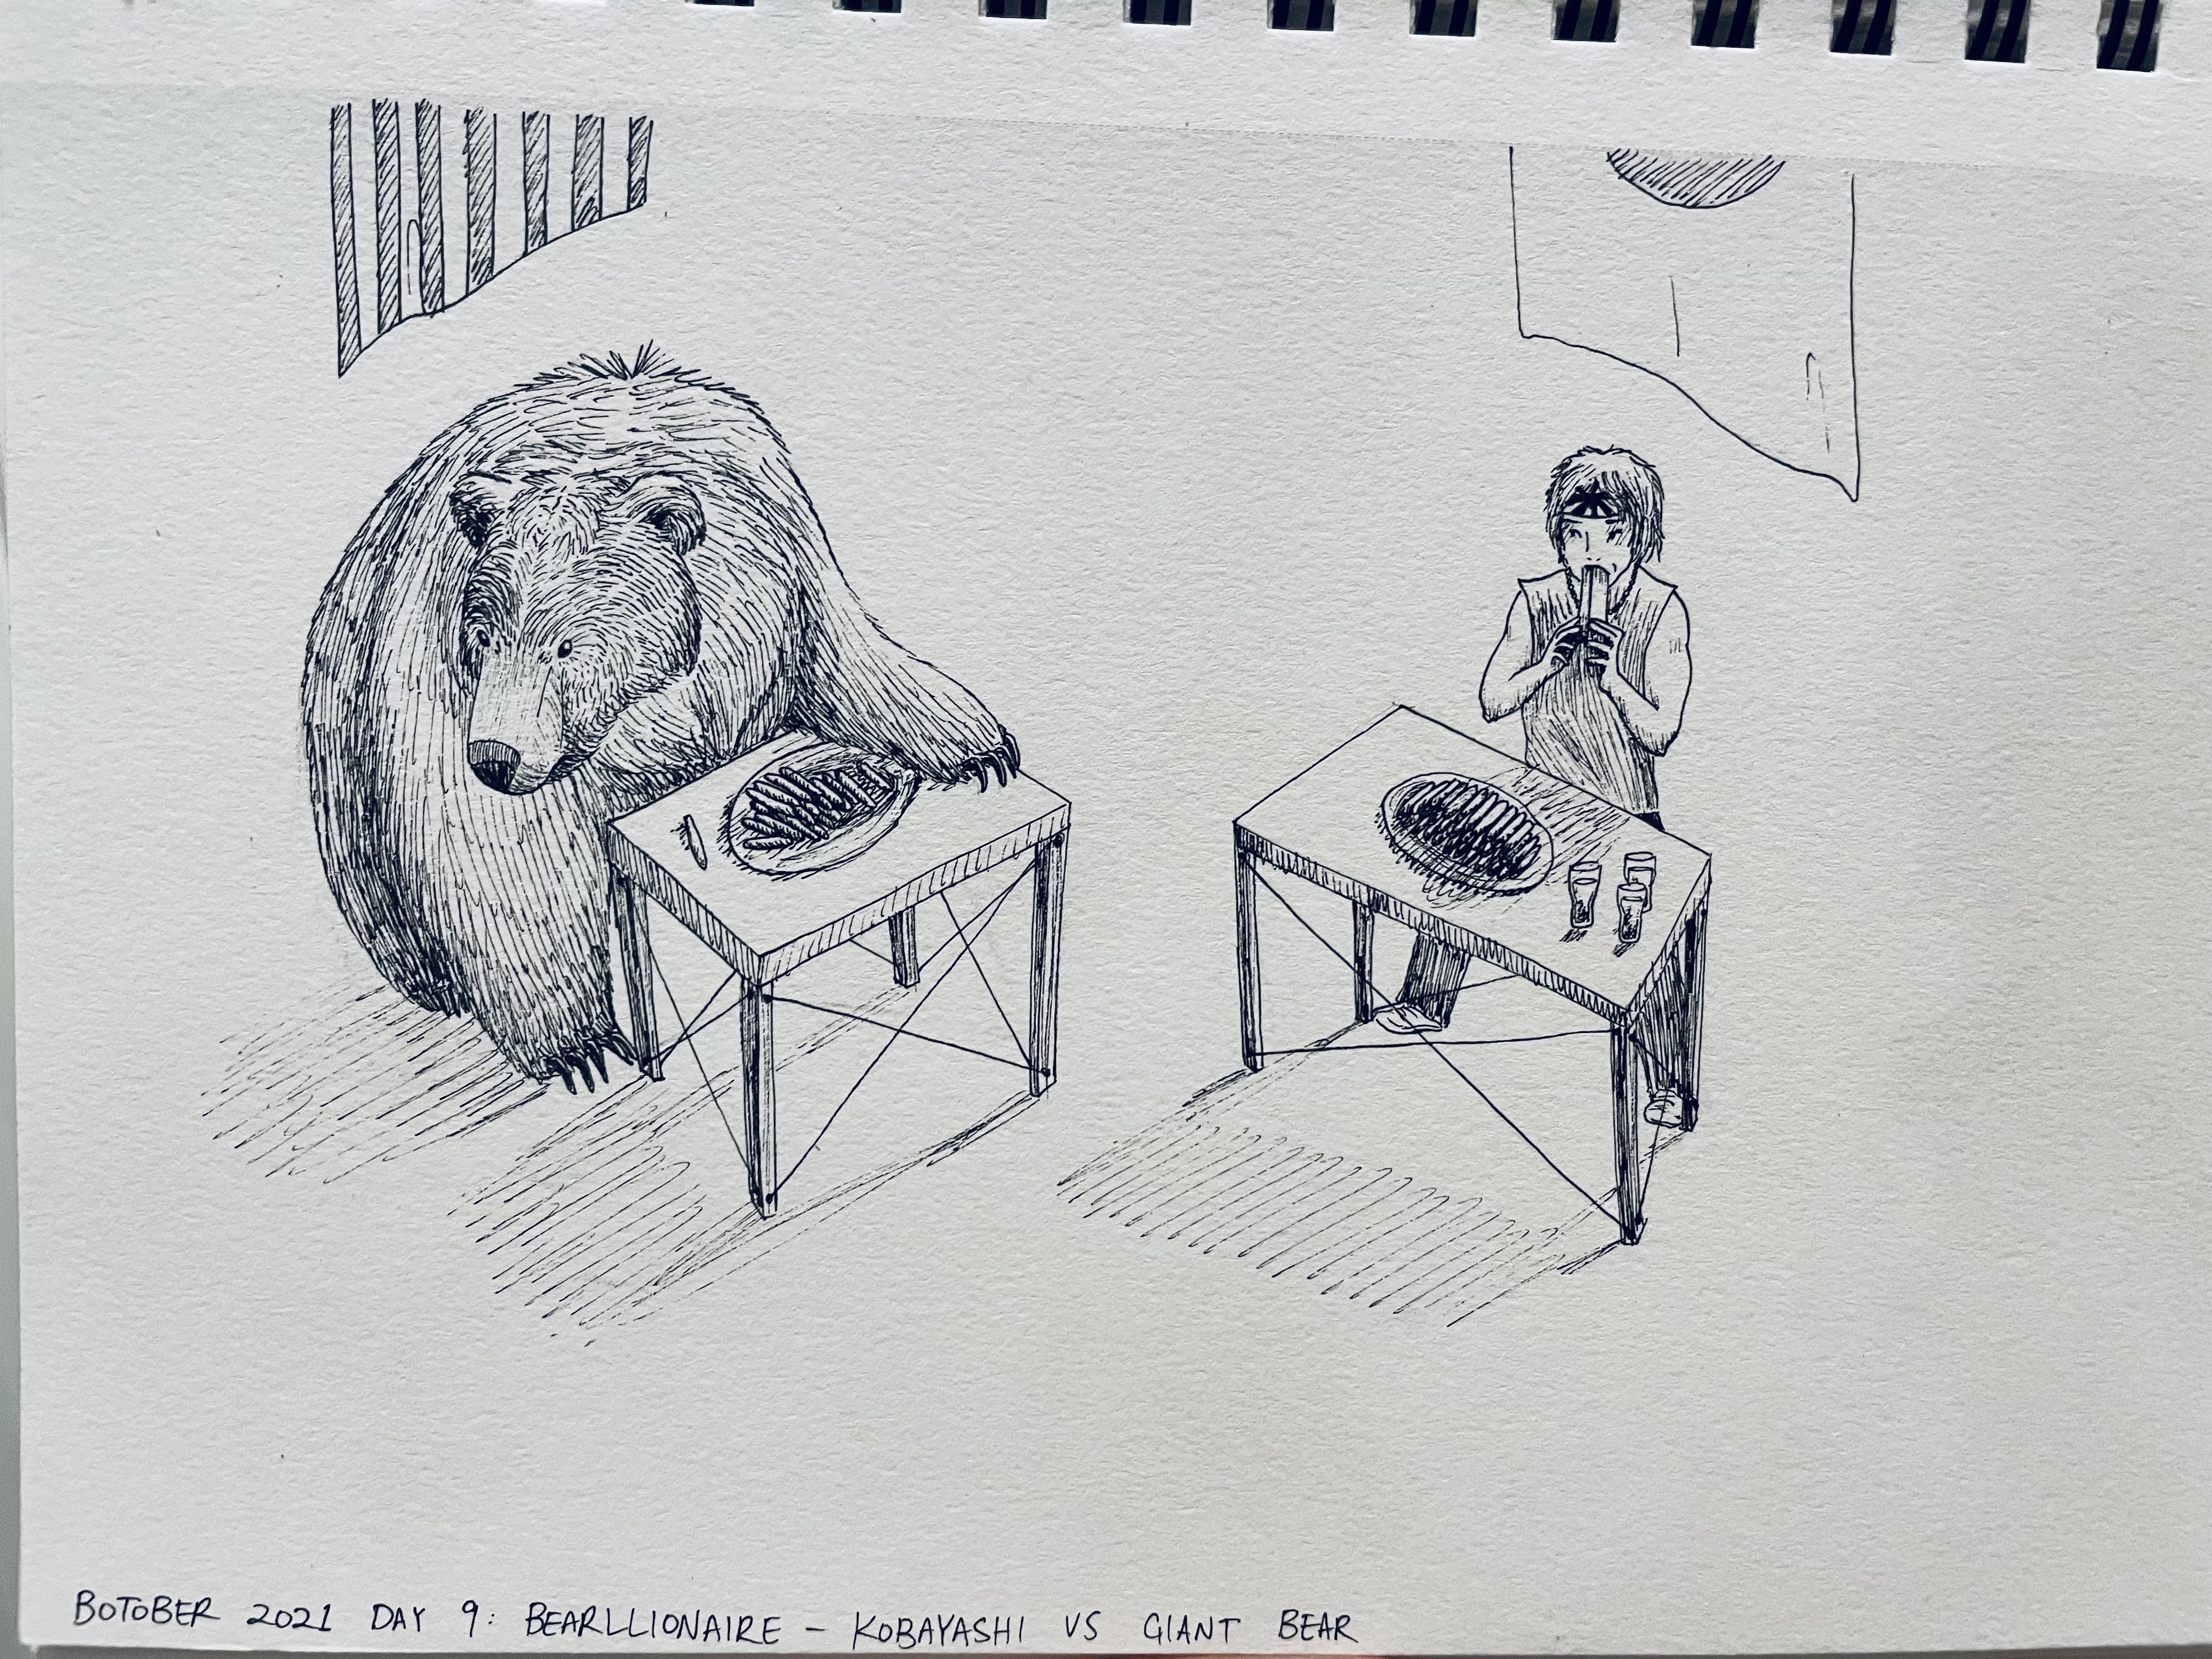 BOTOBER 2021 DAY 9: BEARLLIONAIRE – KOBAYASHI VS GIANT BEAR